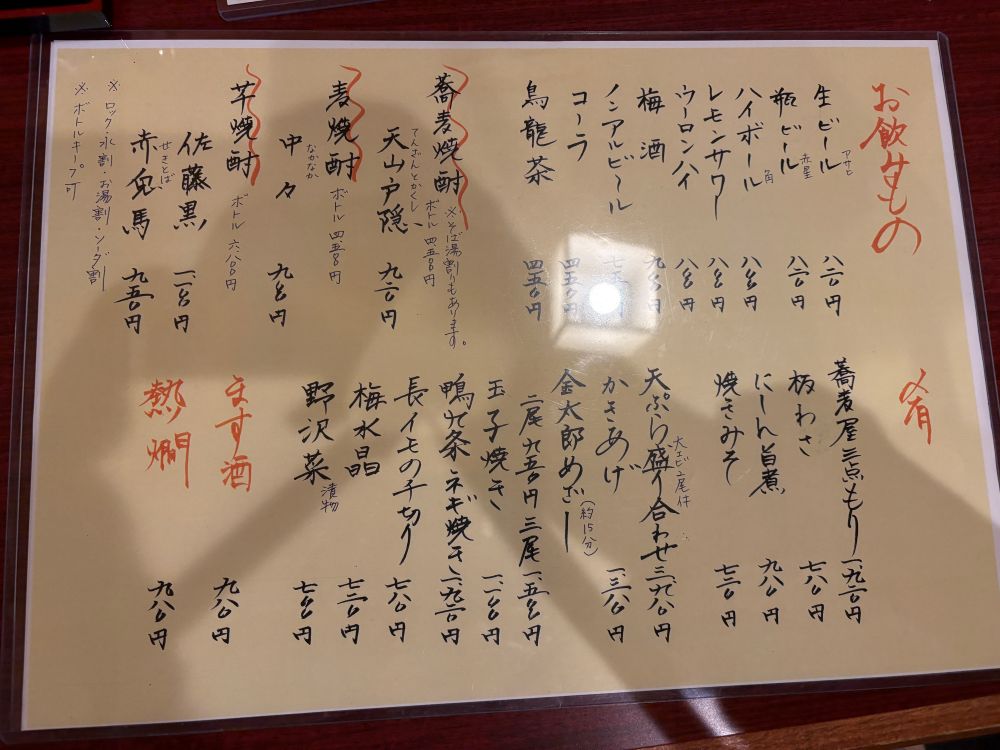 お飲みもの
生ビール アサヒ 八二〇円
瓶ビール 赤星
ハイボール 角
レモンサワー
ウーロンハイ
梅酒
ノンアルビール
コーラ 四五〇円
烏龍茶 四五〇円
蕎麦焼酎 ボトル 四、五〇〇円
※そば湯割りもあります。
てんざんとかくし
天山戸隠 九二〇円
麦焼酎 ボトル 四、五〇〇円
なかなか
中々
芋焼酎 ボトル 六、八〇〇円
佐藤黒
せきとば
赤兎馬 九五〇円
※ロック・水割・お湯割・ソーダ割
※ボトルキープ可
〆肴
蕎麦屋三点もり 一、九二〇円
板わさ 七八〇円
にしん旨煮 九八〇円
焼きみそ 七三〇円
天ぷら盛り合わせ 大エビ二尾付 三、九八〇円
かきあげ 一、三八〇円
金太郎めざし (約15分)
二尾 九五〇円 三尾 一、五〇〇円
玉子焼き
鴨九条ネギ焼き 一、九二〇円
長イモの千切り 七八〇円
梅水晶 七三〇円
野沢菜 漬物
ます酒 九八〇円
熱燗 九八〇円